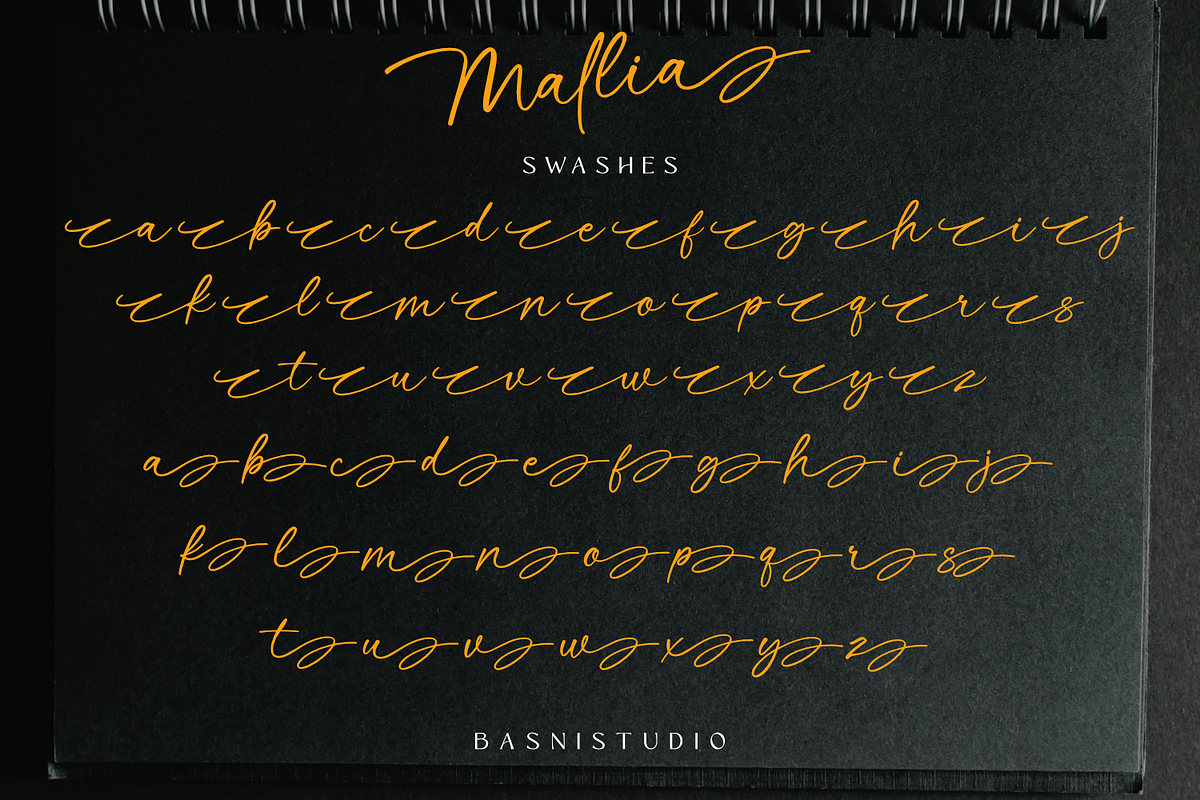 Mallia
SWASHES
a b c d e f g h i j
k l m n o p q r s
t u v w x y z
a b c d e f g h i j
k l m n o p q r s
t u v w x y z
BASNISTUDIO